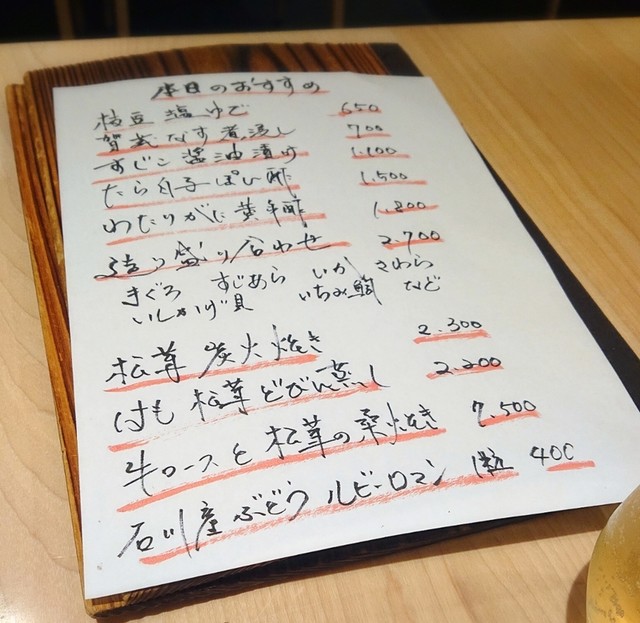 本日のおすすめ
枝豆 塩ゆで 650
賀茂なす煮浸し 700
すじこ醤油漬け 1.100
たら白子ぽん酢 1.500
わたりがに黄身酢 1.800
造り盛り合わせ 2.700
まぐろ すじあら いか さわら
いしかげ貝 いちみ鯛 など
松茸 炭火焼き 2.300
はも 松茸 どびん蒸し 2.200
牛ロースと松茸の朴葉焼き 7.500
石川産ぶどう ルビーロマン 1粒 400